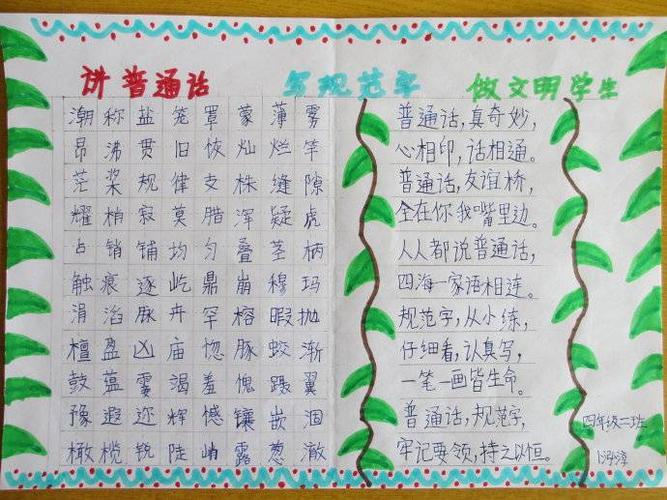 讲普通话 写规范字 做文明学生
潮称盐笼罩蒙薄雾
昂沸贯旧恢灿烂竿
茫桨规律支株缝隙
耀梢寂莫腊浑疑虎
占销铺均匀叠茎柄
触痕逐屹鼎崩穆玛
涓滔脉卉罕榕暇抛
檀盈凶庙惚豚蛟渐
鼓蕴霎竭羞愧踢翼
豫遐迩辉憾镶嵌涸
橄榄锐陡峭露葱澈
普通话,真奇妙,
心相印,话相通。
普通话,友谊桥,
全在你我嘴里边。
人人都说普通话,
四海一家语相连。
规范字,从小练,
仔细看,认真写,
一笔一画皆生命。
普通话,规范字,
牢记要领,持之以恒。
四年级二班